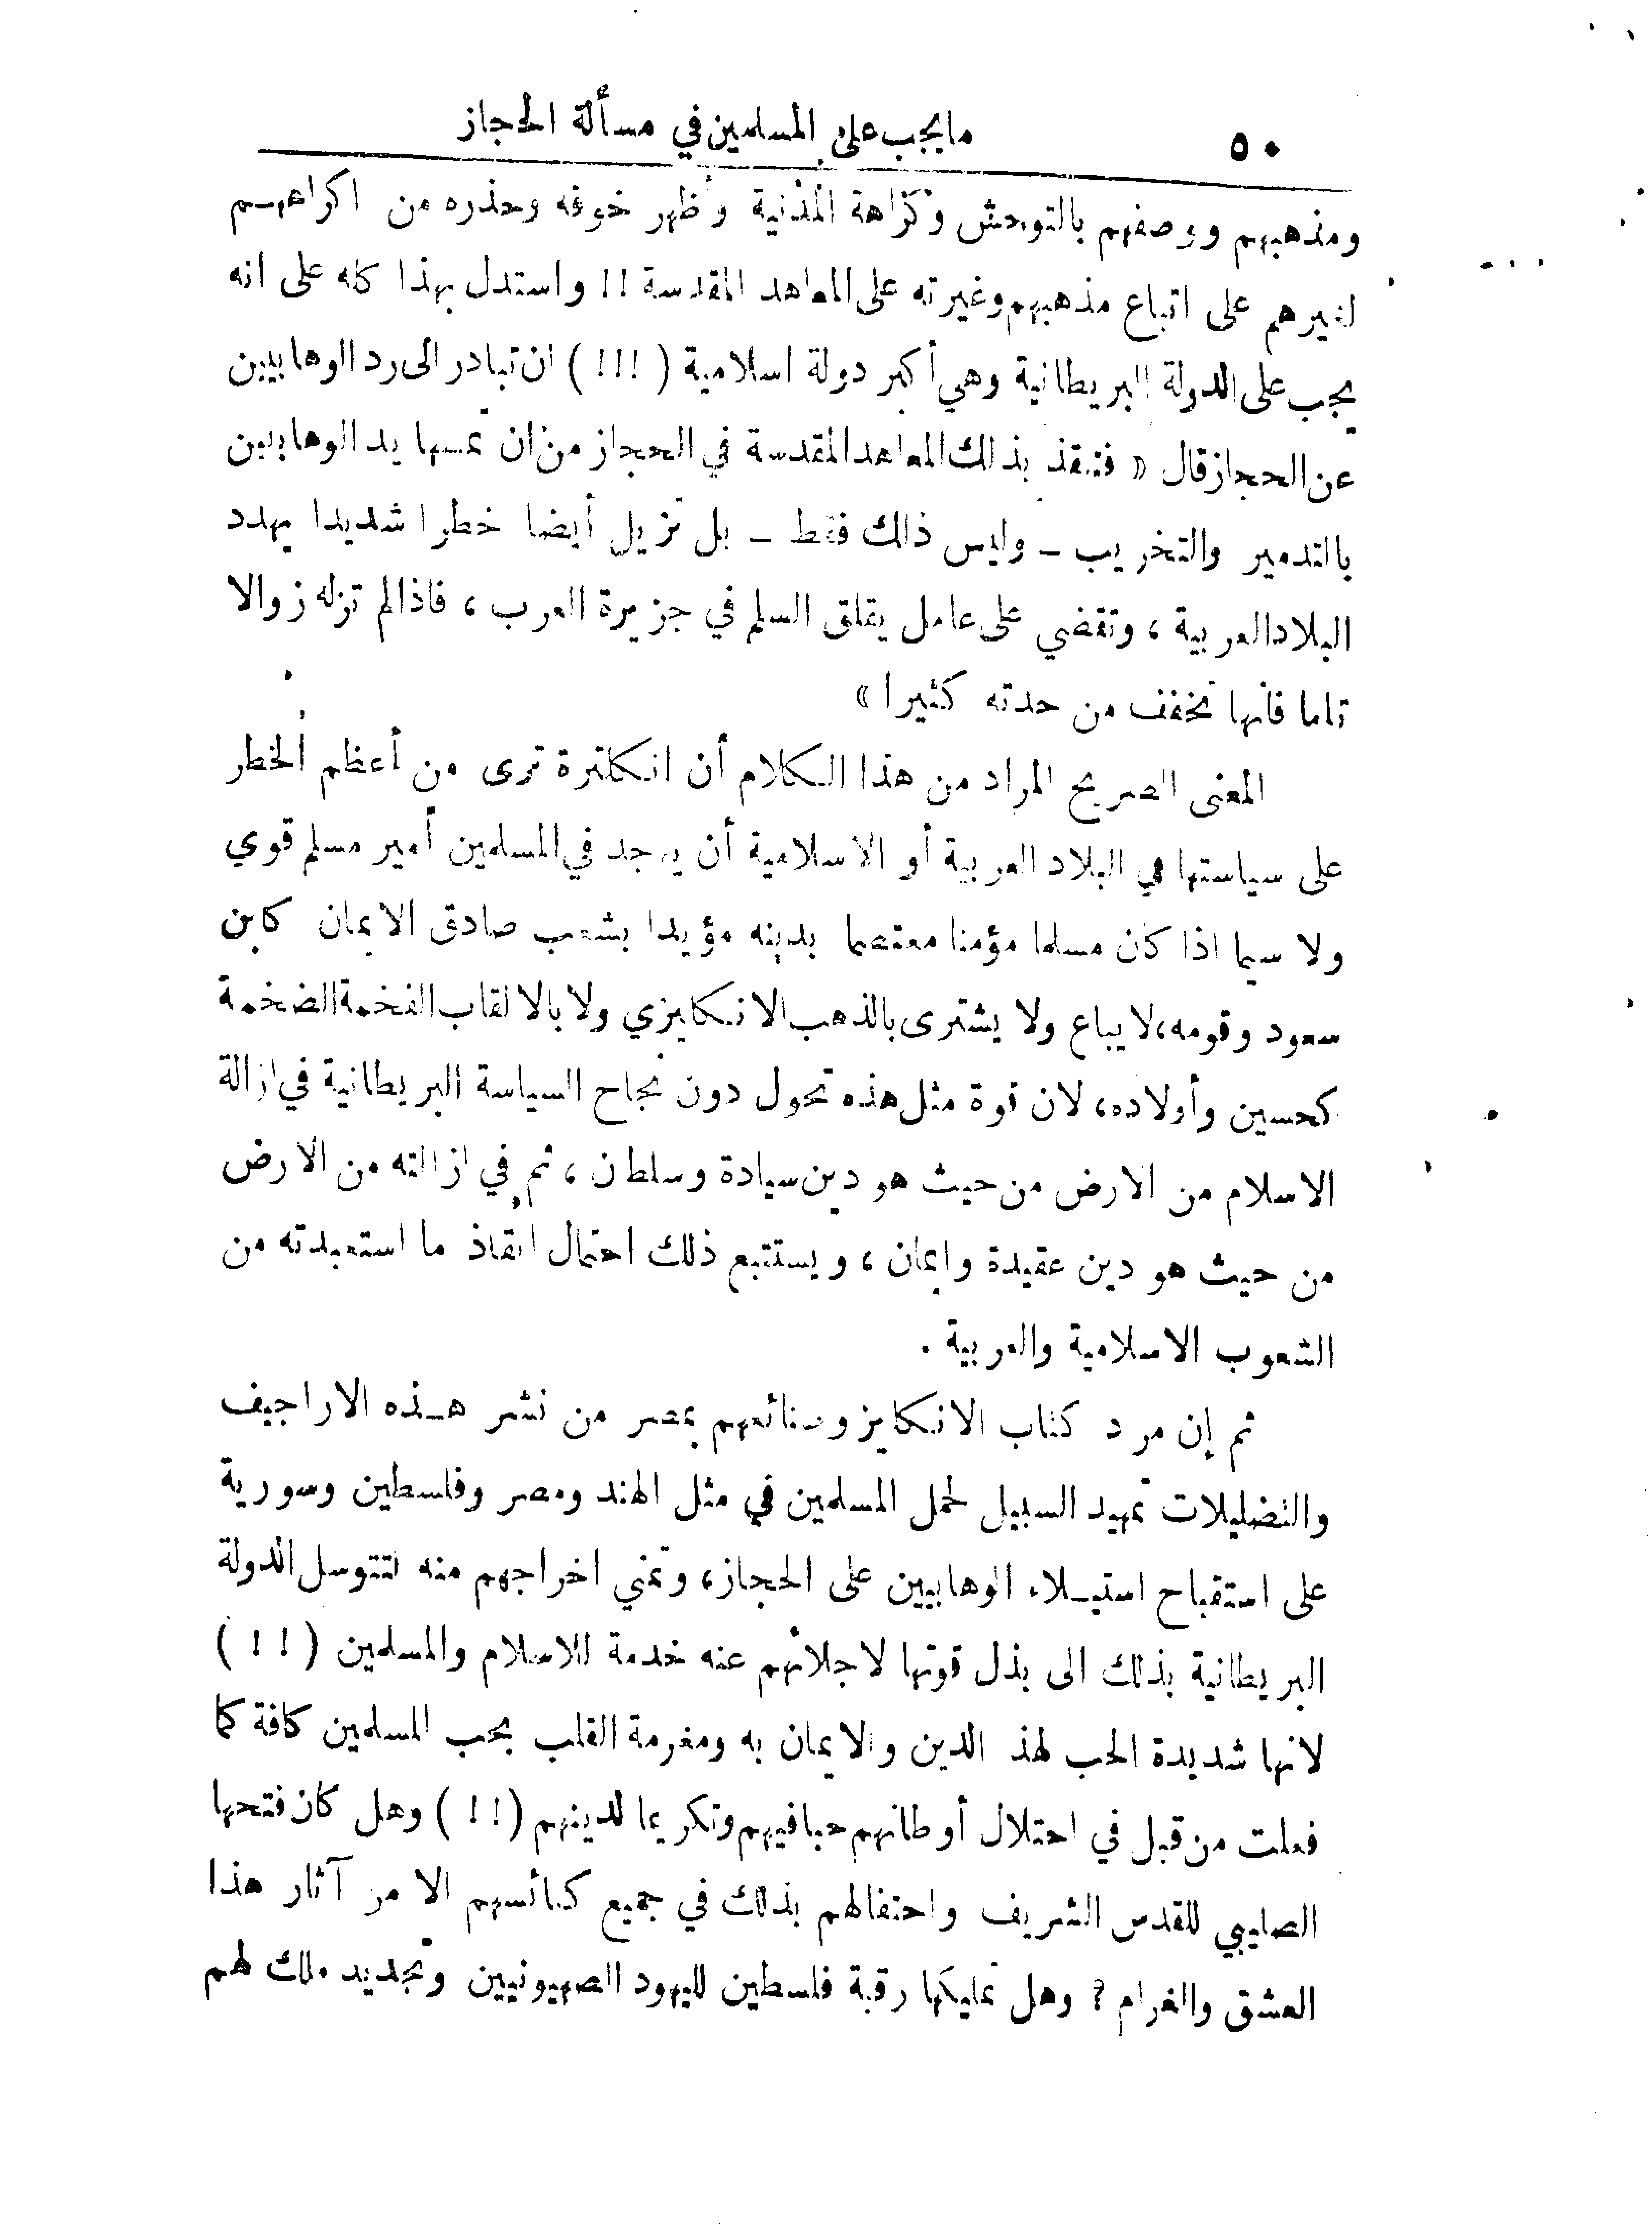 ٥٠
مايجب على المسلمين في مسألة الحجاز
ومذهبهم ووصفهم بالتوحش وكراهة المدنية وأظهر خوفه وحذره من اكراههم
لغيرهم على اتباع مذهبهم وغيرته على المعاهد المقدسة !! واستدل بهذا كله على انه
يجب على الدولة البريطانية وهي أكبر دولة اسلامية ( !!! ) ان تبادر الى رد الوهابيين
عن الحجاز قال « فتنقذ بذلك المعاهد المقدسة في الحجاز من ان تمسها يد الوهابيين
بالتدمير والتخريب ـ وليس ذلك فقط ـ بل تزيل أيضا خطرا شديدا يهدد
البلاد العربية ، وتقضي على عامل يقلق السلم في جزيرة العرب ، فاذا لم تزله زوالا
تاما فانها تخفف من حدته كثيرا »
المعنى الصريح المراد من هذا الكلام أن انكلترة ترى من أعظم الخطر
على سياستها في البلاد العربية أو الاسلامية أن يوجد في المسلمين أمير مسلم قوي
ولا سيما اذا كان مسلما مؤمنا معتصما بدينه مؤيدا بشعب صادق الايمان كابن
سعود وقومه، لا يباع ولا يشترى بالذهب الانكليزي ولا بالالقاب الفخمة الضخمة
كحسين وأولاده، لان قوة مثل هذه تحول دون نجاح السياسة البريطانية في ازالة
الاسلام من الارض من حيث هو دين سيادة وسلطان ، ثم في ازالته من الارض
من حيث هو دين عقيدة وايمان ، ويستتبع ذلك احتمال انقاذ ما استعبدته من
الشعوب الاسلامية والعربية .
ثم إن مرد كتاب الانكليز وصنائعهم بمصر من نشر هـذه الاراجيف
والتضليلات تمهيد السبيل لحمل المسلمين في مثل الهند ومصر وفلسطين وسورية
على استقباح استيـلاء الوهابيين على الحجاز، وتمني اخراجهم منه لتتوسل الدولة
البريطانية بذلك الى بذل قوتها لاجلائهم عنه خدمة للاسلام والمسلمين ( !! )
لانها شديدة الحب لهذ الدين والايمان به ومغرمة القلب بحب المسلمين كافة كما
فعلت من قبل في احتلال أوطانهم حبا فيهم وتكريما لدينهم ( !! ) وهل كان فتحها
الصليبي للقدس الشريف واحتفالهم بذلك في جميع كنائسهم الا من آثار هذا
العشق والغرام ? وهل تمليكها رقبة فلسطين لليهود الصهيونيين وتجديد ملك لهم